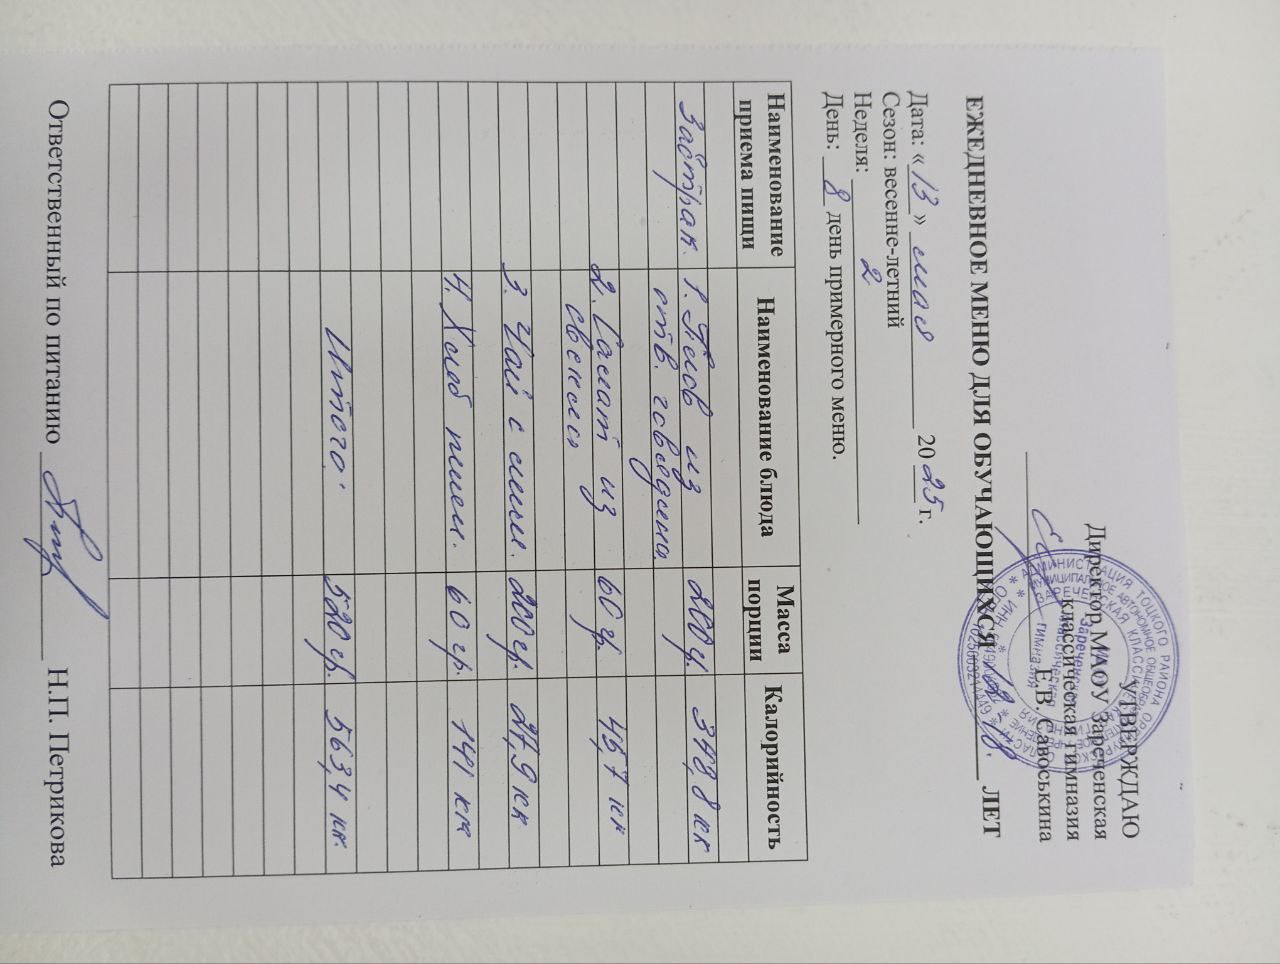 УТВЕРЖДАЮ
Директор МАОУ Зареченская
классическая гимназия
Е.В. Савоськина
ЕЖЕДНЕВНОЕ МЕНЮ ДЛЯ ОБУЧАЮЩИХСЯ ЛЕТ
Дата: «13» мая 2025 г.
Сезон: весенне-летний
Неделя: 2
День: 8 день примерного меню.
Наименование приема пищи Наименование блюда Масса порции Калорийность
Завтрак. 1. Плов из 200 гр. 348,8 кк
отв. говядины.
2. Салат из 60 гр. 45,7 кк
свеклы
3. Чай с лим. 200 гр. 27,9 кк
4. Хлеб пшен. 60 гр. 141 кк
Итого: 520 гр. 563,4 кк.
Ответственный по питанию Н.П. Петрикова